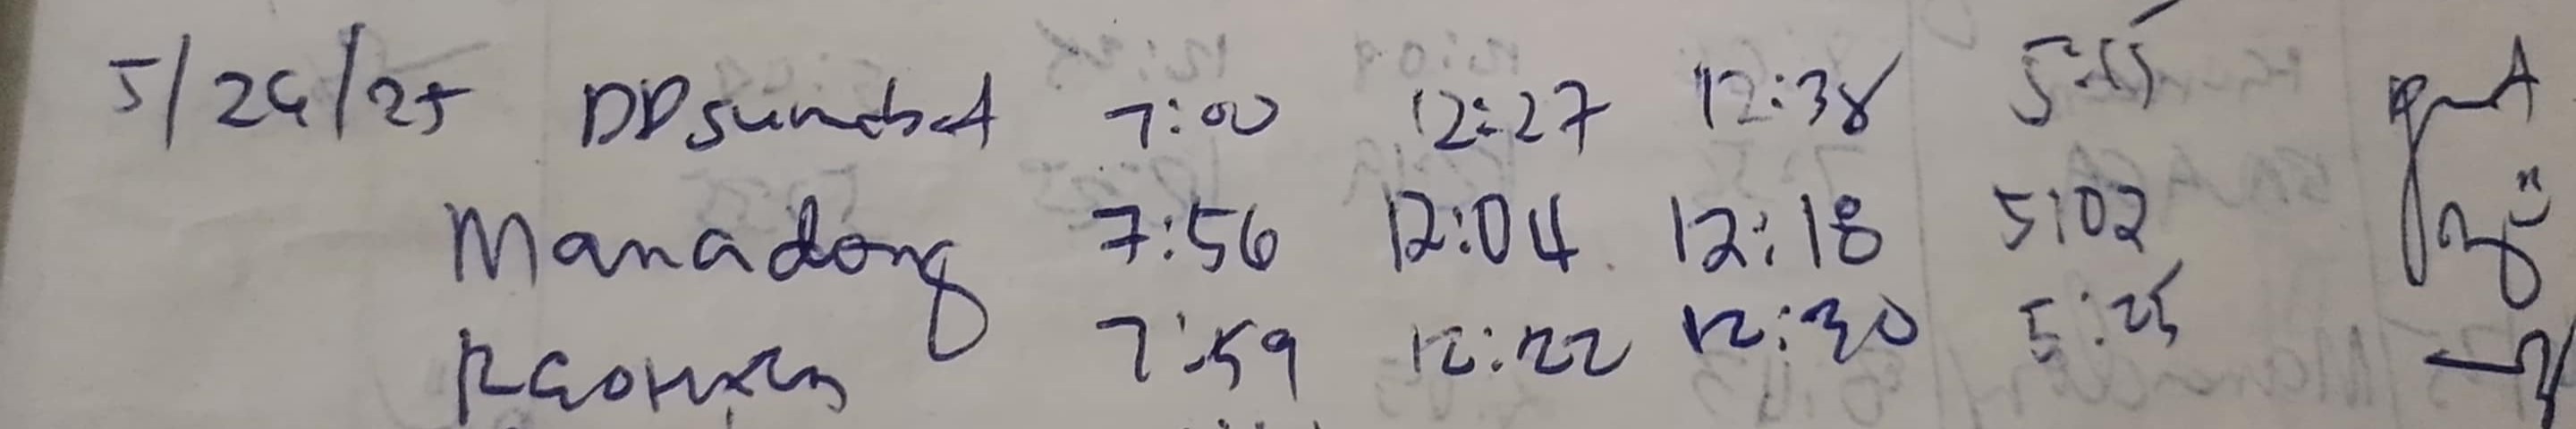 5/24/25 DDsumabat 7:00 12:27 12:38 5:55
Manadong 7:56 12:04 12:18 5:02
7:59 12:22 12:30 5:25